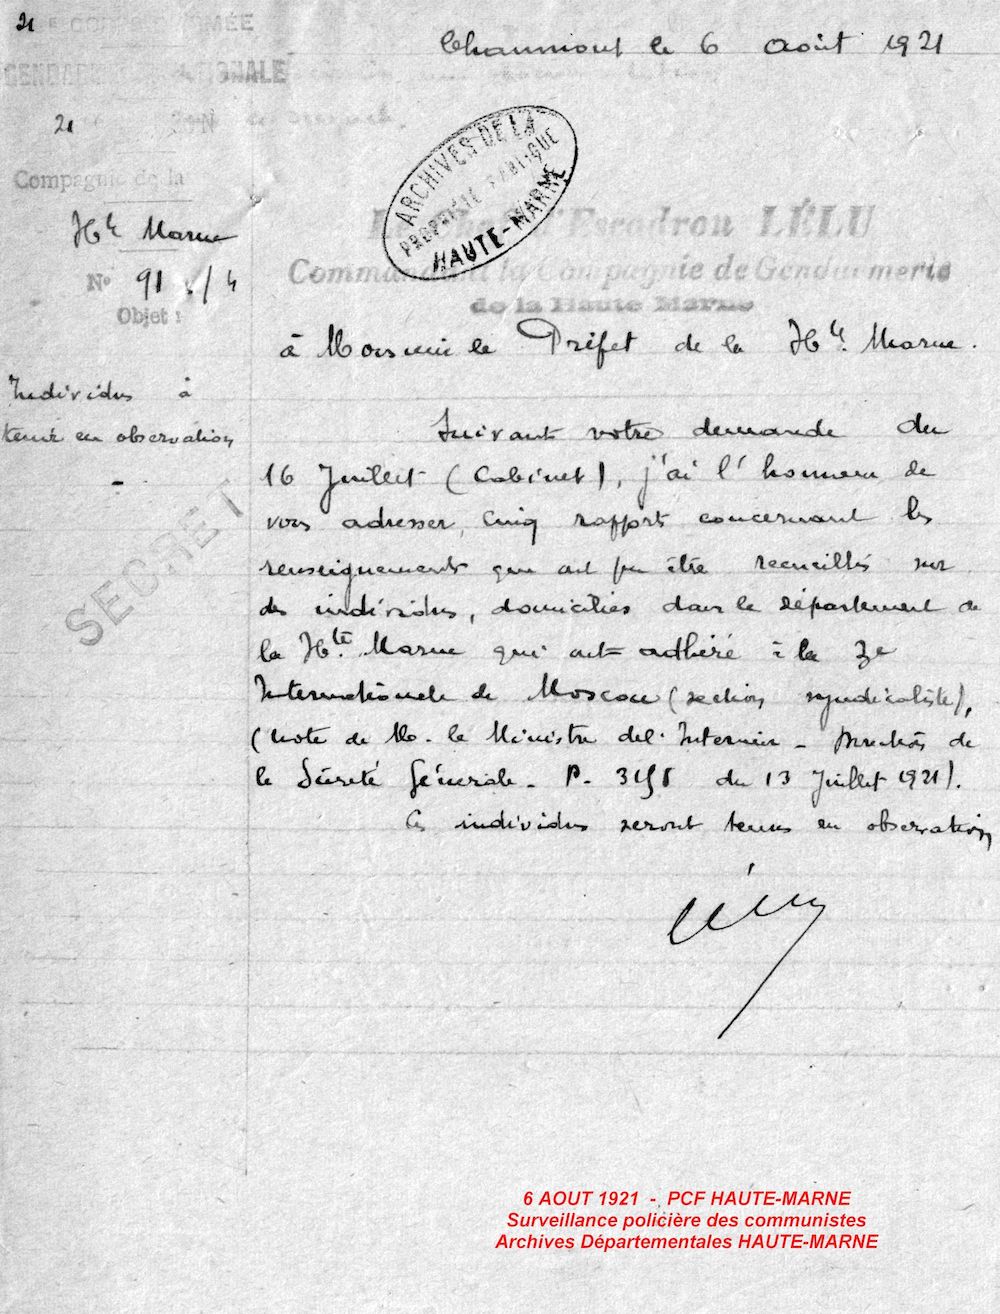 21
CORPS D'ARMÉE
Chaumont le 6 août 1921
GENDARMERIE NATIONALE
21
Compagnie de la
Hte Marne
No 91 /4
Objet :
Individus à
tenir en observation
SECRET
ARCHIVES DE LA
PROPRIÉTÉ PUBLIQUE
HAUTE-MARNE
Le Chef d'Escadron LÉLU
Commandant la Compagnie de Gendarmerie
de la Haute Marne
à Monsieur le Préfet de la Hte Marne.
Suivant votre demande du
16 Juillet (Cabinet), j'ai l'honneur de
vous adresser, cinq rapports concernant les
renseignements qui ont pu être recueillis sur
des individus, domiciliés dans le département de
la Hte Marne qui ont adhéré à la 3e
Internationale de Moscou (section syndicaliste),
(note de M. le Ministre de l'Intérieur - Direction de
la Sûreté Générale - P. du 13 Juillet 1921).
Ces individus seront tenus en observation
Lélu
6 AOUT 1921 - PCF HAUTE-MARNE
Surveillance policière des communistes
Archives Départementales HAUTE-MARNE